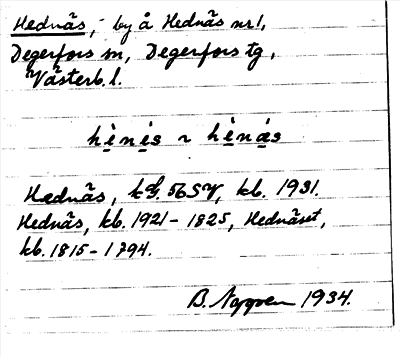 Hednäs, - by å Hednäs nr 1,
Degerfors sn, Degerfors tg,
Västerb. l.
hènès ~ hènás
Hednäs, kb. 1931.
Hednäs, kb. 1921-1825, Hednäset,
kb. 1815-1794.
B. 1934.